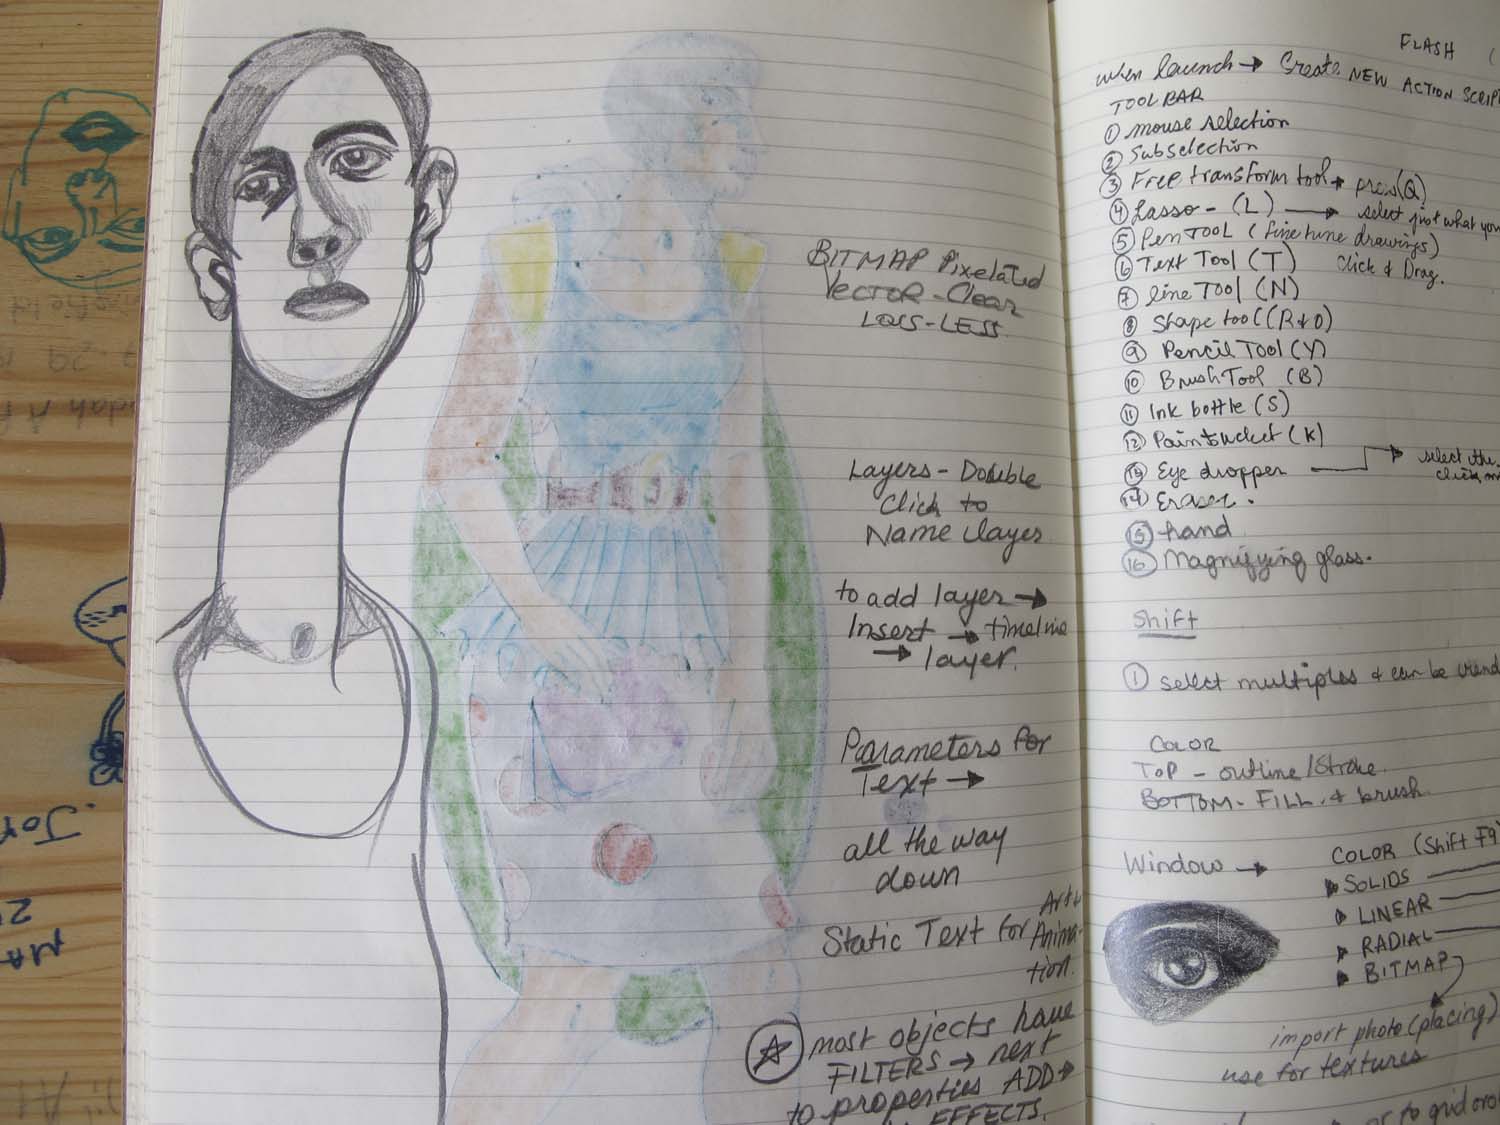 BITMAP Pixelated
VECTOR - Clear
LOSS-LESS
Layers - Double
Click to
Name layer
to add layer →
Insert → timeline
→ layer.
Parameters for
Text →
all the way
down
Static Text for Art &
Anima-
tion.
most objects have
FILTERS → next
to properties ADD →
EFFECTS.
FLASH (
when launch → Create NEW ACTION SCRIPT
TOOL BAR
① mouse selection
② Subselection
③ Free transform tool → press (Q)
④ Lasso - (L) → select just what you
⑤ Pen TOOL (fine tune drawings)
⑥ Text Tool (T) Click & Drag.
⑦ line Tool (N)
⑧ Shape tool (R & O)
⑨ Pencil Tool (Y)
⑩ Brush Tool (B)
⑪ Ink bottle (S)
⑫ Paintbucket (K)
⑬ Eye dropper → select the
click
⑭ Eraser.
⑮ hand
⑯ Magnifying glass.
Shift
① select multiples & can be
COLOR
TOP - outline/Stroke.
BOTTOM - FILL & brush.
Window → COLOR (Shift F9)
SOLIDS
LINEAR
RADIAL
BITMAP
import photo (placing)
use for textures
or to grid